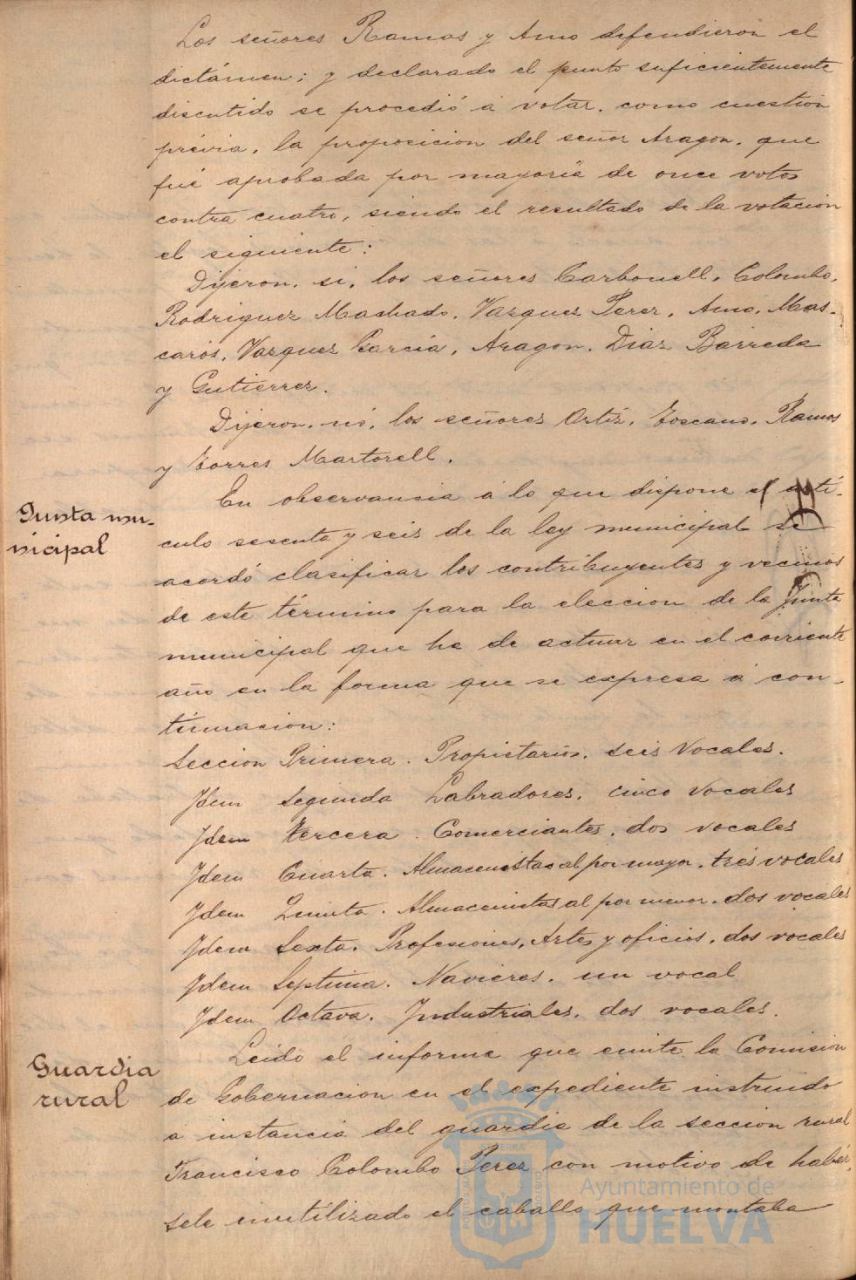 Los señores Ramos y Amo defendieron el
dictámen; y declarado el punto suficientemente
discutido se procedió á votar, como cuestion
prévia, la proposicion del señor Aragon, que
fué aprobada por mayoría de once votos
contra cuatro, siendo el resultado de la votacion
el siguiente:
Dijeron, si, los señores Carbonell, Colombo,
Rodriguez Machado, Vazquez Perez, Amo, Mas-
carós, Vazquez García, Aragon, Diaz Barreda
y Gutierrez.
Dijeron, nó, los señores Ortíz, Toscano, Ramos
y Torres Martorell.
Junta mu-
nicipal
En observancia á lo que dispone el artí-
culo sesenta y seis de la ley municipal se
acordó clasificar los contribuyentes y vecinos
de este término para la eleccion de la Junta
municipal que ha de actuar en el corriente
año en la forma que se expresa á con-
tinuacion:
Seccion Primera. Propietarios, seis Vocales.
Idem Segunda Labradores, cinco vocales
Idem Tercera. Comerciantes, dos vocales
Idem Cuarta. Almacenistas al por mayor, tres vocales
Idem Quinta. Almacenistas al por menor, dos vocales
Idem Sexta. Profesiones, Artes y oficios, dos vocales
Idem Septima. Navieros, un vocal
Idem Octava. Industriales, dos vocales.
Guardia
rural
Leido el informe que emite la Comision
de Gobernacion en el expediente instruido
á instancia del guardia de la seccion rural
Francisco Colombo Perez con motivo de habér-
sele inutilizado el caballo que montaba
Ayuntamiento de
HUELVA